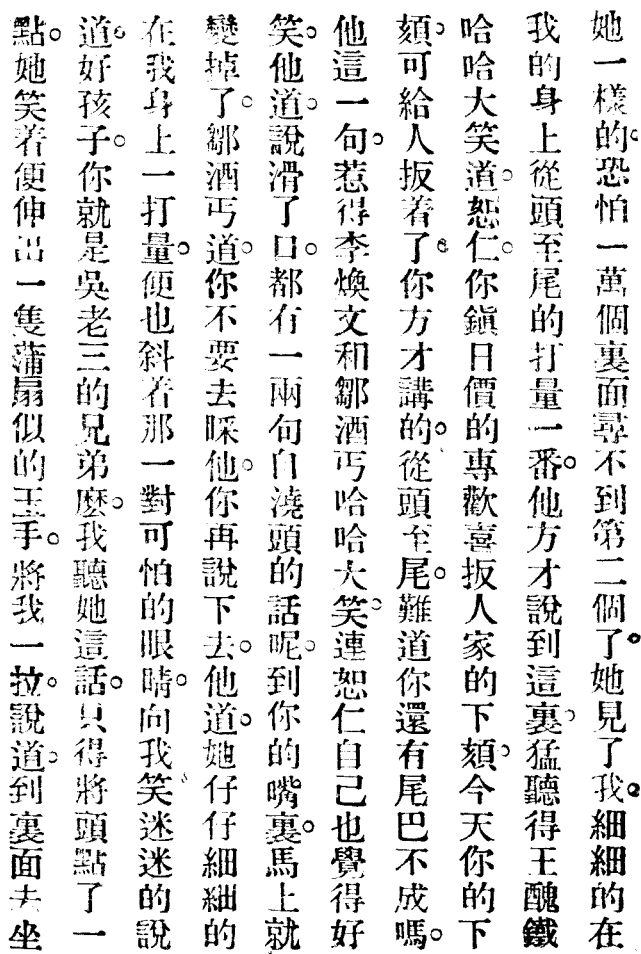 她一樣的。恐怕一萬個裏面尋不到第二個了。她見了我。細細的在
我的身上從頭至尾的打量一番。他方才說到這裏。猛聽得王醜鐵
哈哈大笑道。恕仁。你鎭日價的專歡喜扳人家的下頦。今天你的下
頦。可給人扳着了。你方才講的。從頭至尾。難道你還有尾巴不成嗎。
他這一句。惹得李煥文和鄒酒丐哈哈大笑。連恕仁自己也覺得好
笑。他道。說滑了口。都有一兩句自澆頭的話呢。到你的嘴裏。馬上就
變掉了。鄒酒丐道。你不要去睬他。你再說下去。他道。她仔仔細細的
在我身上一打量。便也斜着那一對可怕的眼睛。向我笑迷迷的說
道。好孩子。你就是吳老三的兄弟麼。我聽她這話。只得將頭點了一
點。她笑着便伸出一隻蒲扇似的玉手。將我一拉。說道。到裏面去坐